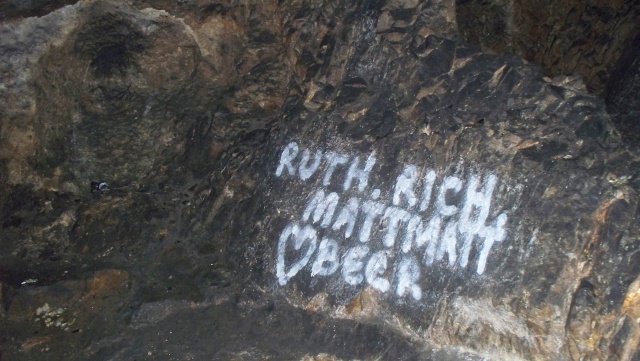 RUTH. RICH
MATTMATT
♡BECR